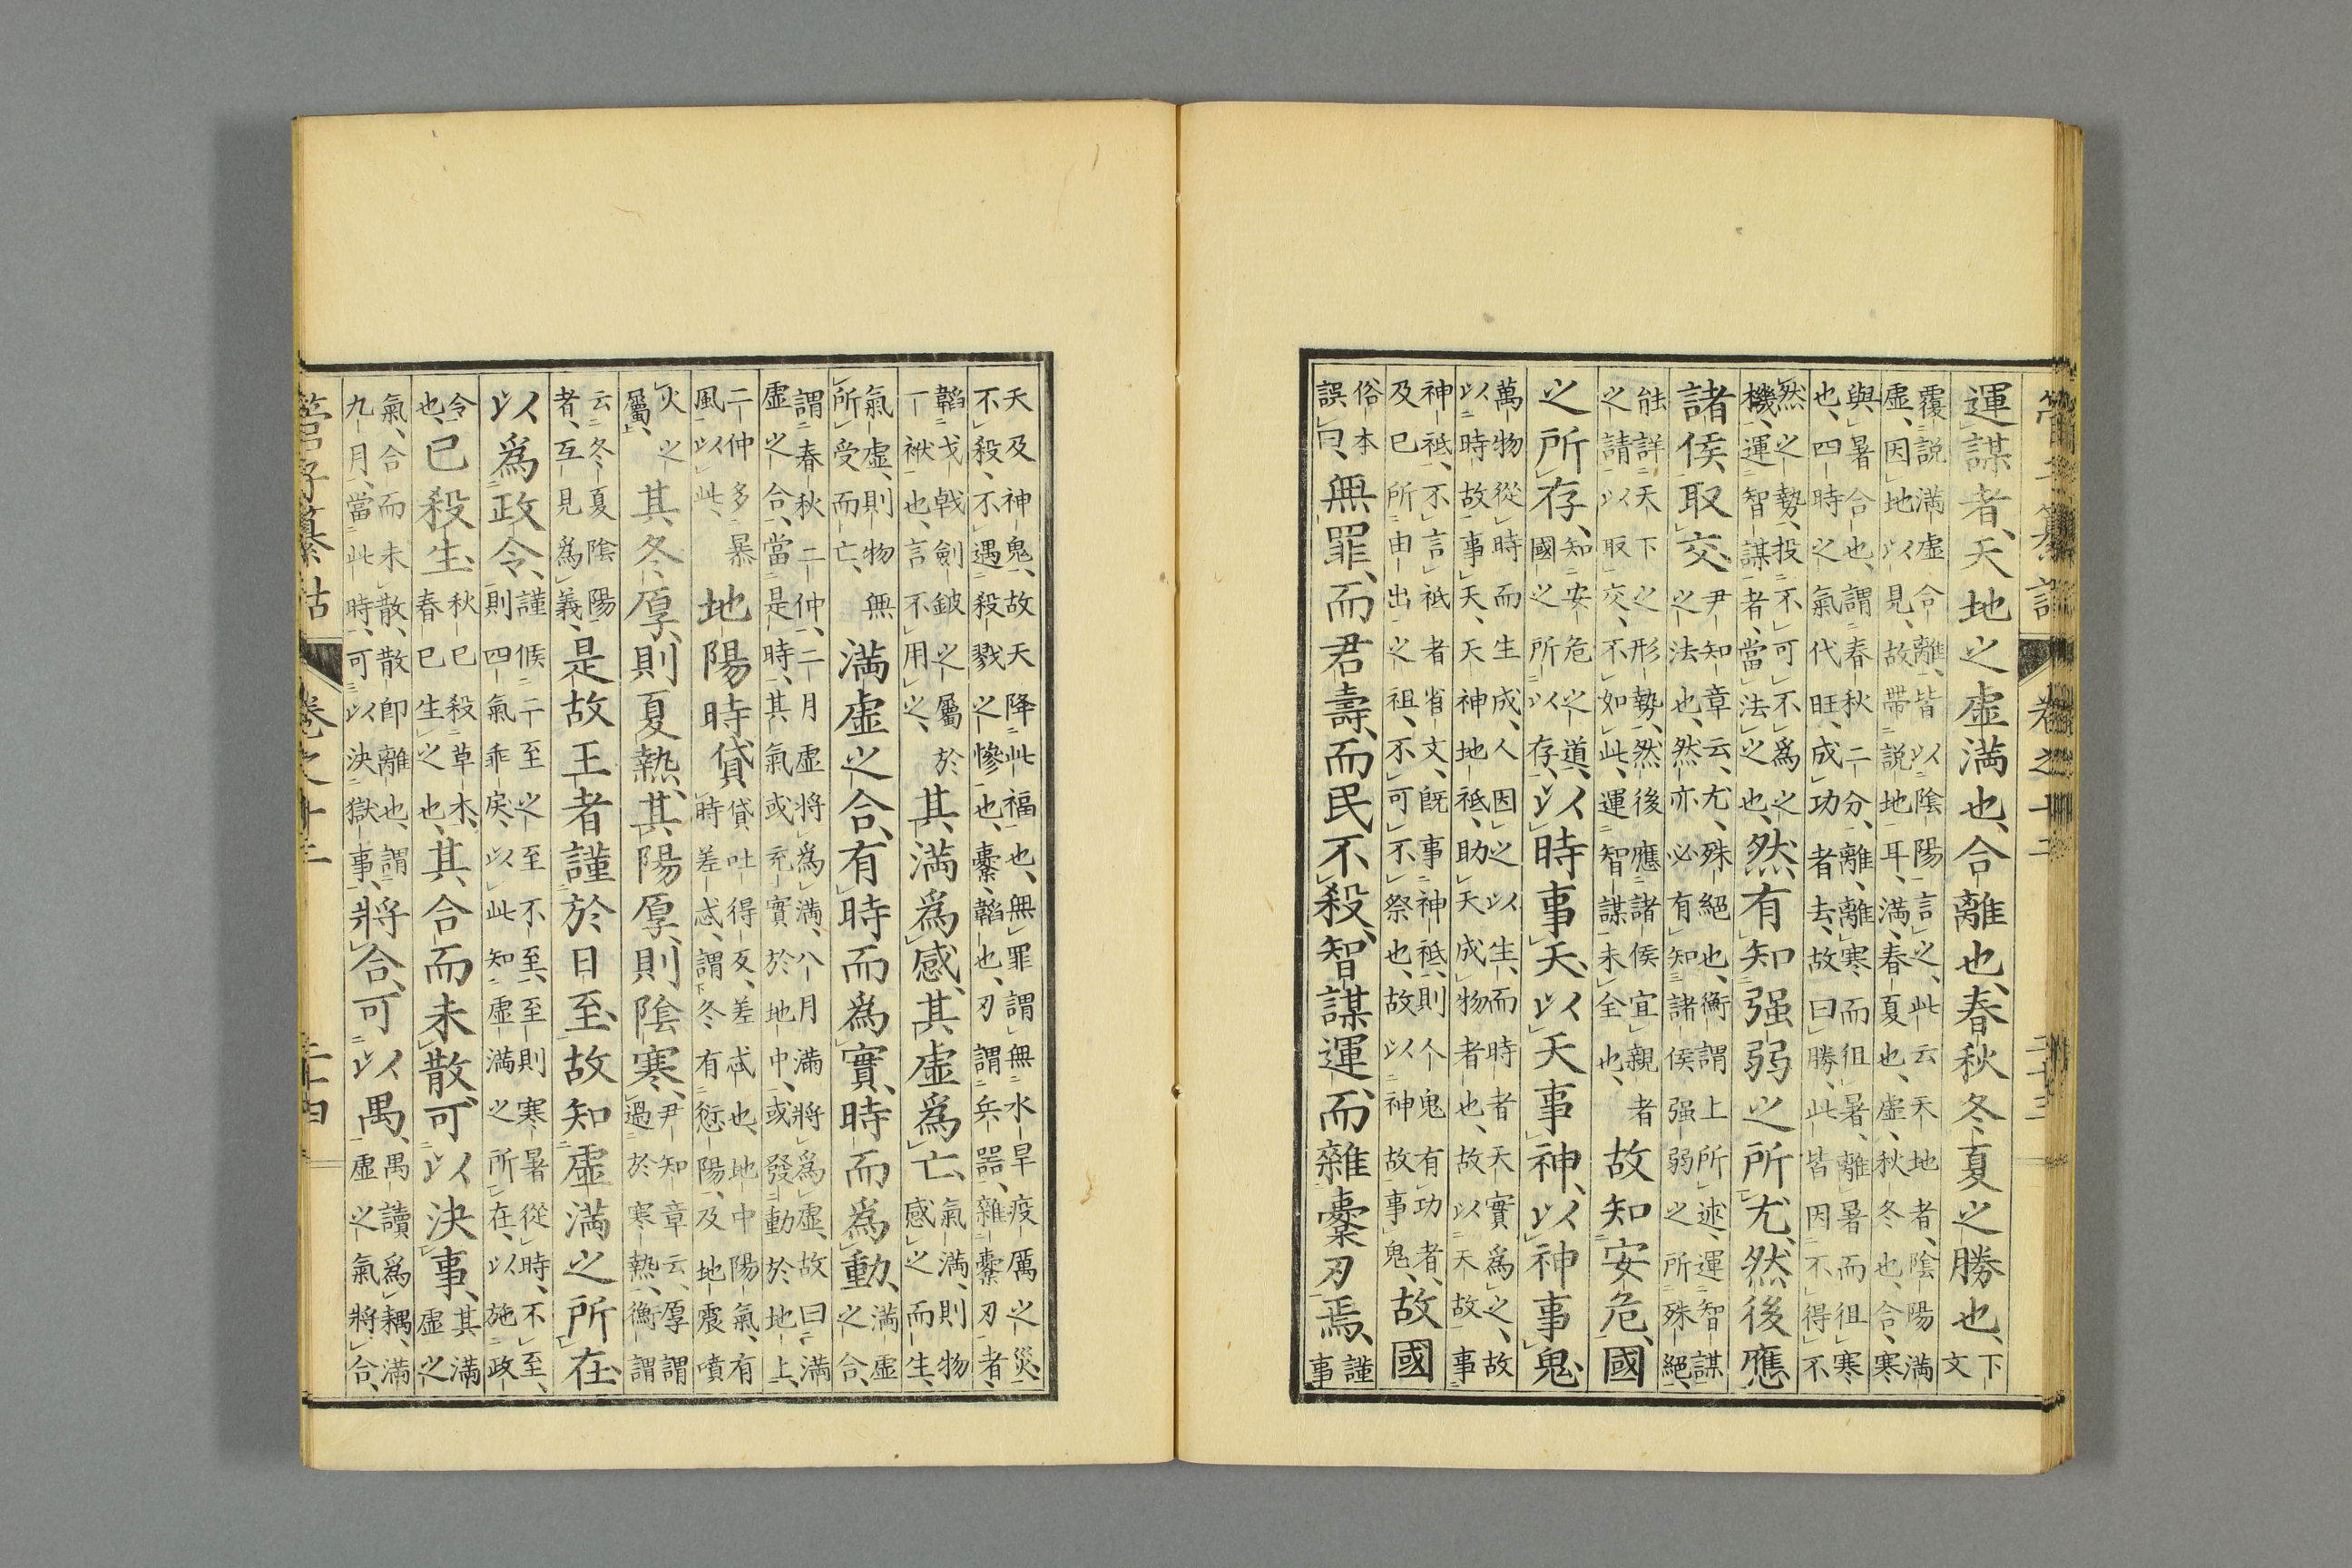 管子纂詁 卷之十二 二十三
運謀者、天地之虛滿也、合離也、春秋冬夏之勝也、下
文
覆說滿虛合離、皆以陰陽言之、此云天地者、陰陽滿
虛、因地以見、故帶說地耳、滿、春夏也、虛、秋冬也、合、寒
與暑合也、謂春秋二分、離、離寒而徂暑、離暑而徂寒
也、四時之氣代旺、成功者去、故曰勝、此皆因不得不
然之勢、投不可不爲之
機、運智謀者、當法之也、
然有知强弱之所尤、然後應
諸侯取交、
尹知章云、尤、殊絕也、衡謂上所述、運智謀
之法也、然亦必有知諸侯强弱之所殊絕、
能詳天下之形勢、然後應諸侯宜親者
之請以取交、不如此、運智謀未全也、
故知安危、國
之所存、
知安危之道、
國之所以存、
以時事天、以天事神、以神事鬼、
萬物從時而生成、人因之以生、而時者天實爲之、故
以時故事天、天神地祗、助天成物者也、故以天故事
神祗、不言祗者省文、旣事神祗、則人鬼有功者、
及已所由出之祖、不可不祭也、故以神故事鬼、
故國
俗本
誤曰、
無罪、而君壽、而民不殺、智謀運、而雜櫜刃焉、
謹
事
天及神鬼、故天降此福也、無罪謂無水旱疫厲之災、
不殺、不遇殺戮之慘也、櫜、韜也、刃謂兵器、雜櫜刃者、
韜戈戟劍鈹之屬於
一袱也、言不用之、
其滿爲感、其虛爲亡、
氣滿、則物
感之而生、
氣虛、則物無
所受而亡、
滿虛之合、有時而爲實、時而爲動、
滿虛
之合、
謂春秋二仲、二月虛將爲滿、八月滿將爲虛、故曰滿
虛之合、當是時、其氣或充實於地中、或發動於地上、
二仲多暴
風以此、
地陽時貸、
貸、吐得反、差忒也、地中陽氣、有
時差忒、謂冬有愆陽、及地震噴
火之
屬、
其冬厚、則夏熱、其陽厚、則陰寒、
尹知章云、厚謂
過於寒熱、衡謂
云冬夏陰陽
者、互見爲義、
是故王者謹於日至、故知虛滿之所在、
以爲政令、
謹候二至之至不至、至則寒暑從時、不至、
則四氣乖戾、以此知虛滿之所在、以施政
令
也、
已殺生、
秋已殺草木、
春已生之也、
其合而未散、可以決事、
其滿
虛之
氣、合而未散、散卽離也、謂
九月、當此時、可以決獄事、
將合、可以禺、
禺讀爲耦、滿
虛之氣將合、
管子纂詁 卷之十二 二十四